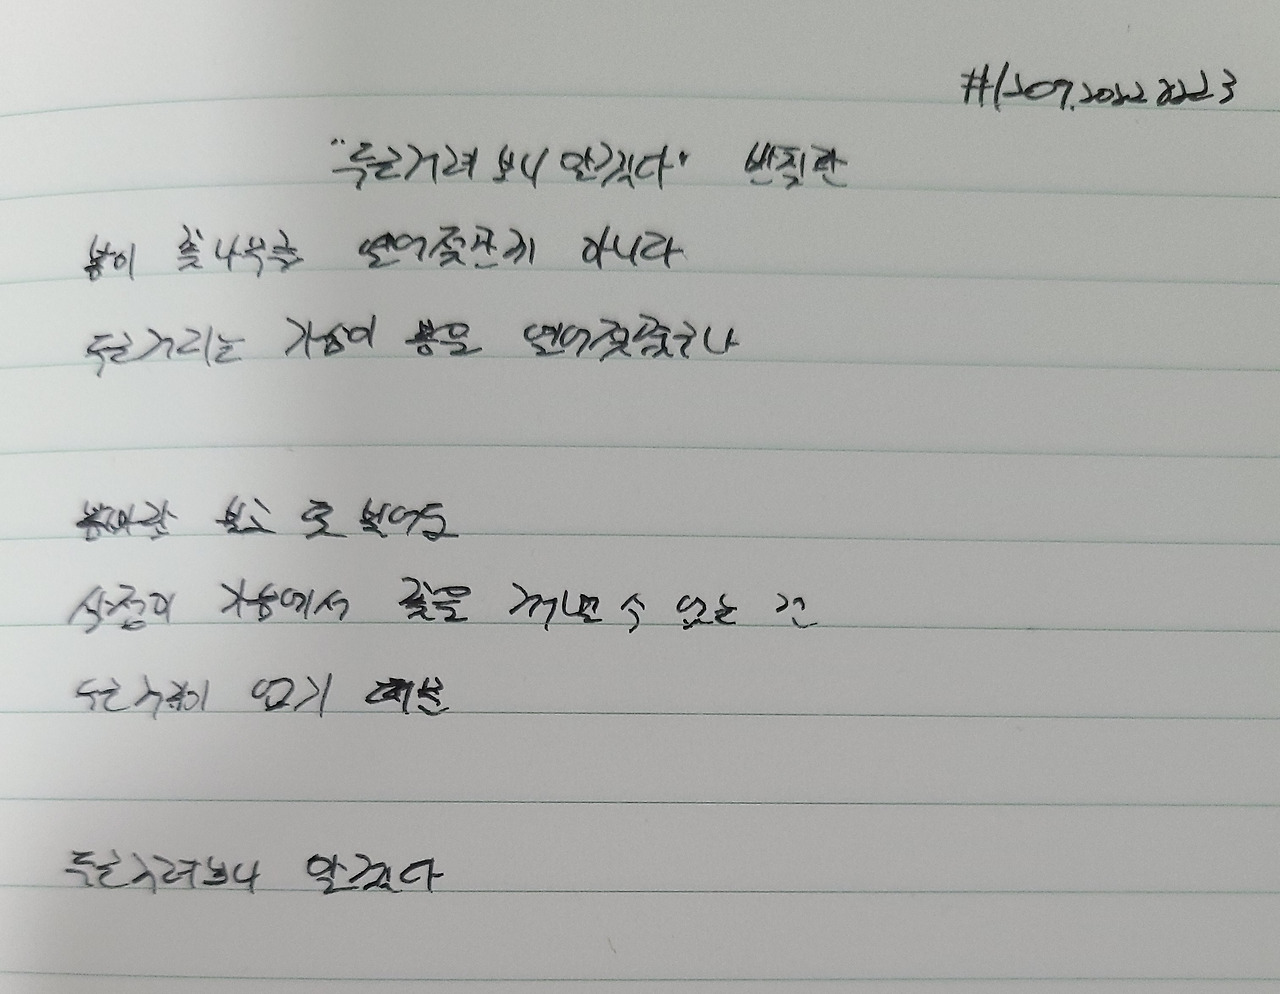 #1209. 2022 2223
"두근거려 보니 알겠다" 반칠환
봄이 꽃나무를 열어젖힌 게 아니라
두근거리는 가슴이 봄을 열어젖혔구나
봄바람 불고 또 불어도
삭정이 가슴에서 꽃을 꺼낼 수 없는 건
두근거림이 없기 때문
두근거려보니 알겠다